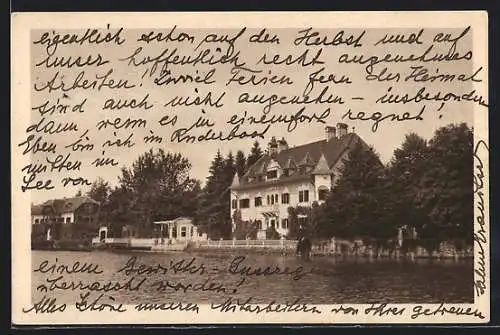 eigentlich schon auf den Herbst und auf
unser hoffentlich recht angenehmes
Arbeiten! Zuviel Ferien fern der Heimat
sind auch nicht angenehm – insbesondere
dann wenn es in einemfort regnet!
Eben bin ich im Ruderboot
mitten im
See von
einem Gewitter-Regen
überrascht worden!
Alles Schöne unseren Mitarbeitern von Ihrer getreuen